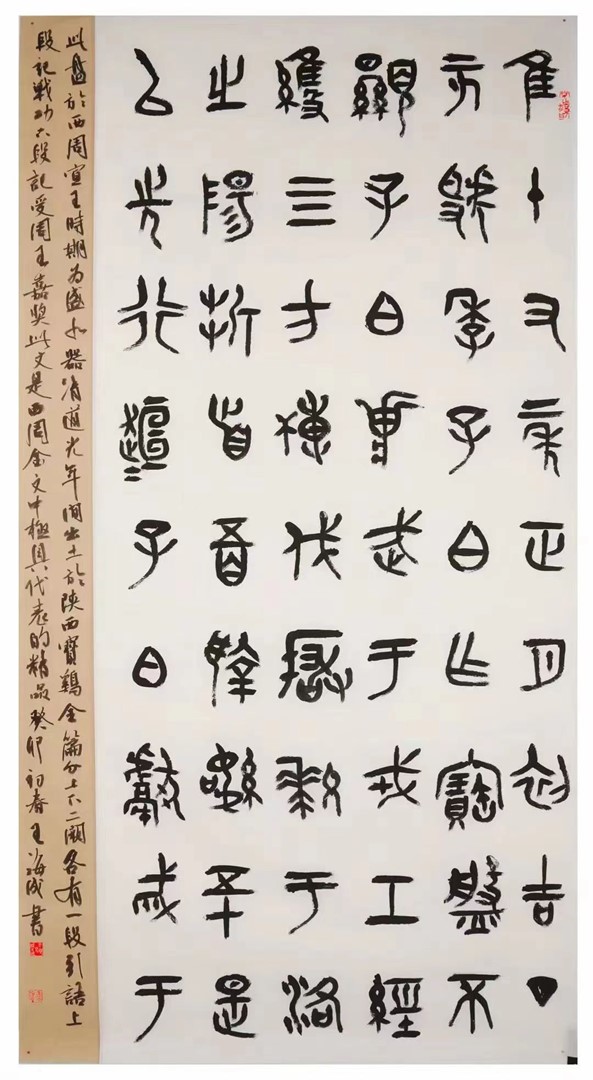 隹十又二年正月初吉丁
亥虢季子白乍寶盤不
顯子白壯武于戎工經
維四方搏伐玁狁于洛
之陽折首五百執訊五十是
以先行趄趄子白獻聝于
此盤於西周宣王時期为盛水器清道光年間出土於陝西寶鷄全篇分上下二闕各有一段引語上
段記戰功下段記受周王嘉奖此文是西周金文中極具代表的精品癸卯初春王海成書